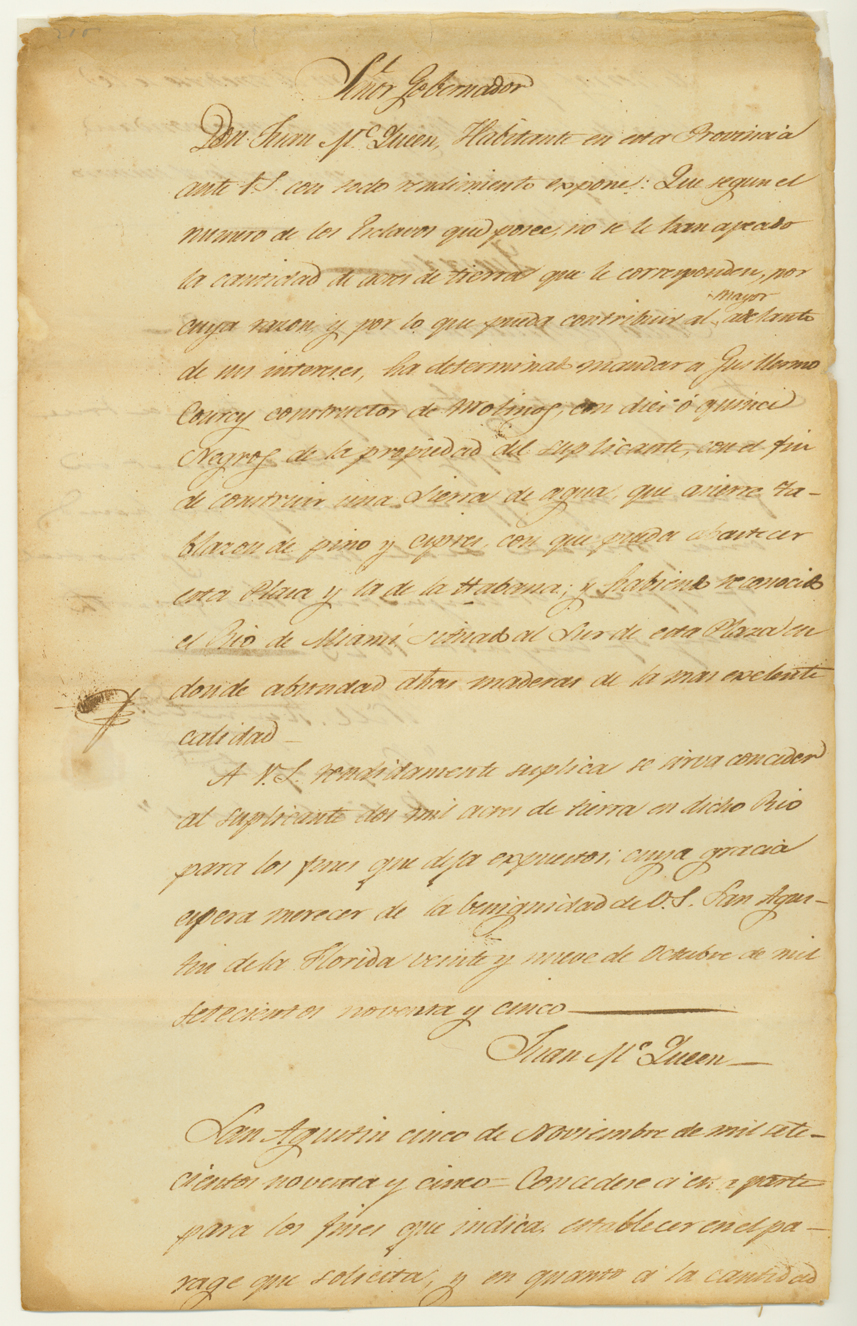 Señor Gobernador
Don Juan McQueen, Habitante en esta Provincia
ante V.S. con todo rendimiento expone: Que segun el
numero de los Esclavos que posee, no se le han apeado
la cantidad de acres de tierra que le corresponden, por
cuya razon, y por lo que pueda contribuir al mayor adelanto
de sus intereses, ha determinado mandar a Guillermo
Courcy constructor de Molinos, con diez ó quince
Negros de la propiedad del suplicante, con el fin
de construir una Sierra de agua, que asierre ta-
blazon de pino y cipres, con que pueda abastecer
esta Plaza y la de la Habana; y habiendo reconocido
el Rio de Miamí situado al Sur de esta Plaza en
donde abundad dhas maderas de la mas exelente
calidad
A V.S. rendidamente suplica se sirva conceder
al suplicante dos mil acres de tierra en dicho Rio
para los fines que deja expuestos; cuya gracia
espera merecer de la benignidad de V.S. San Agus-
tin de la Florida veinte y nueve de Octubre de mil
setecientos noventa y cinco
Juan McQueen
San Agustin cinco de Noviembre de mil sete-
cientos noventa y cinco = Concedese á esta parte
para los fines que indica, establecer en el pa-
rage que solicita, y en quanto á la cantidad